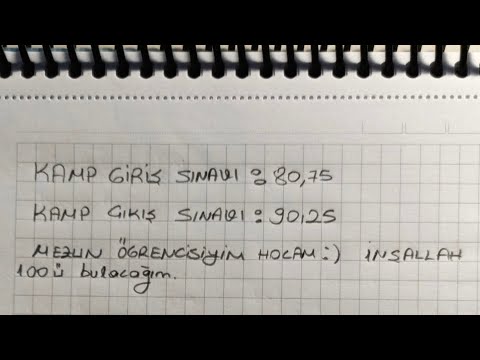 KAMP GİRİŞ SINAVI : 80,75
KAMP ÇIKIŞ SINAVI : 90,25
MEZUN ÖĞRENCİSİYİM HOCAM :) İNŞALLAH
100ü bulacağım.